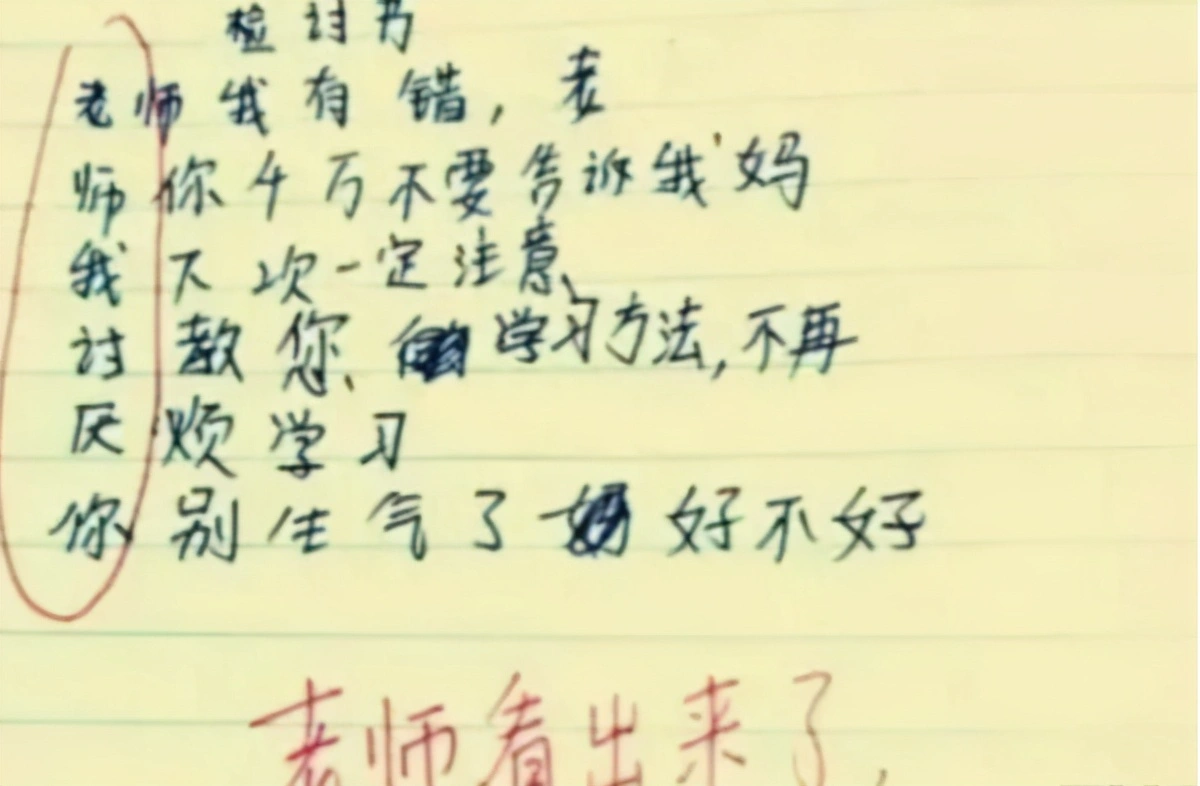 检讨书
老师我有错，老
师你千万不要告诉我妈
我下次一定注意、
讨教您、学习方法，不再
厌烦学习
你别生气了 好不好
老师看出来了，